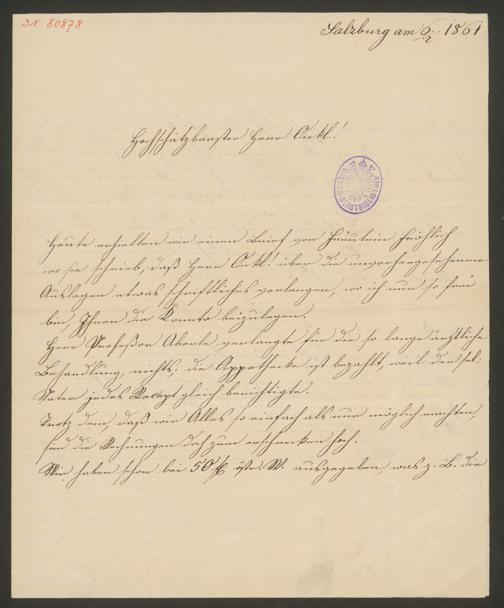 IN 80878
Salzburg am 6/2 1861
Hochschätzbarster Herr Onkl!
WIENER STADTBIBLIOTHEK
Heute erhielten wir einen Brief von Fräulein Fröhlich
wo sie schrieb, daß Herr Onkl! über die unvorhergesehenen
Auslagen etwas schriftliches verlangen, wo ich nun so frei
bin, Ihnen die Konnto beizulegen.
Herr Profeßor Aberle verlangte für die so lange ärztliche
Behandlung, nichts. die Appotheke ist bezahlt, weil der sel.
Vater jedes Recept gleich berichtigte.
Trotz dem, daß wir Alles so einfach als nur möglich machten,
sind die Rechnungen doch zum erschrecken hoch.
Wir haben schon bei 50 f östr. W. ausgegeben was z. B. die